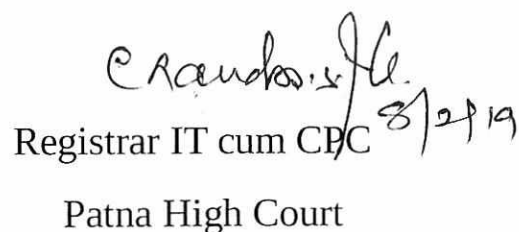 8/2/19
Registrar IT cum CPC
Patna High Court